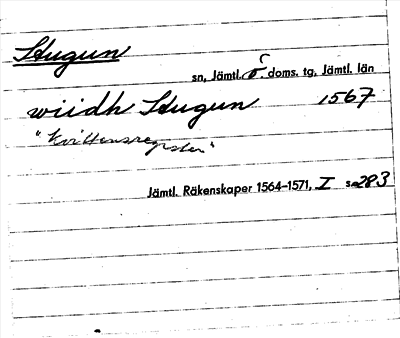 Stugun
sn, Jämtl. ö doms. tg, Jämtl. län
wiidh Stugun 1567
"Kvittensregister"
Jämtl. Räkenskaper 1564–1571, I s. 283